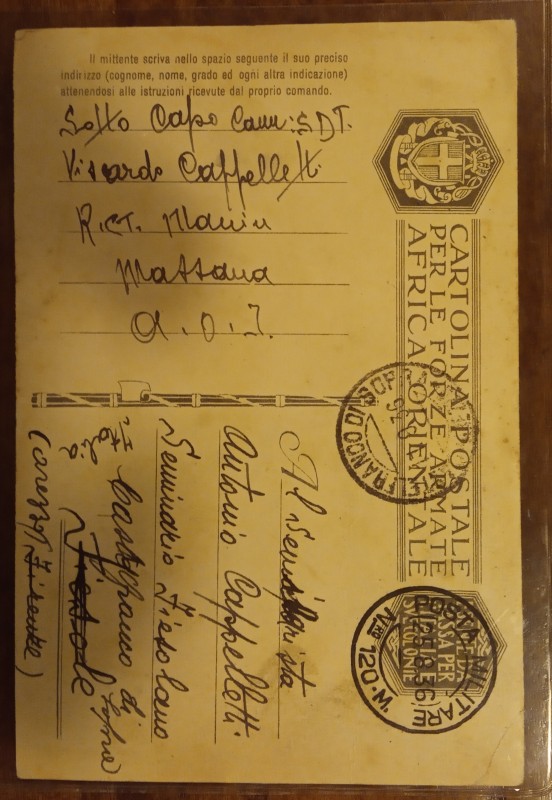 Il mittente scriva nello spazio seguente il suo preciso
indirizzo (cognome, nome, grado ed ogni altra indicazione)
attenendosi alle istruzioni ricevute dal proprio comando.
Sotto Capo Cann: S.D.T.
Viscardo Cappelletti
R. C.T. Manin
Massaua
A. O. I.
CARTOLINA POSTALE
PER LE FORZE ARMATE
AFRICA ORIENTALE
Al Seminarista
Antonio Cappelletti
Seminario Fiesolano
Castelfranco di Sopra
Fiesole
Italia
(Arezzo) Firenze)
FRANCO DI SOP
POSTA MILITARE
8.36
N™ 120.M.